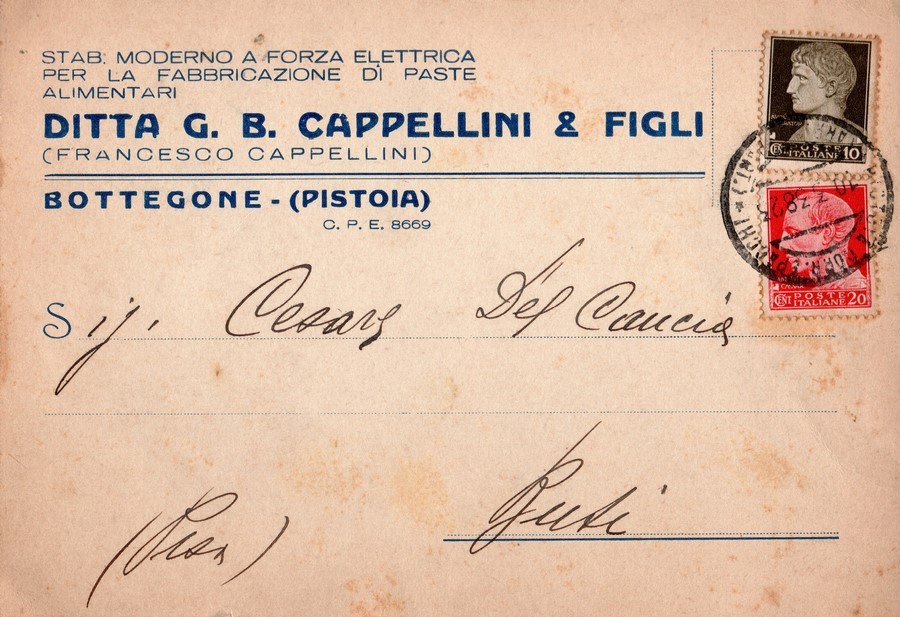 STAB. MODERNO A FORZA ELETTRICA
PER LA FABBRICAZIONE DI PASTE
ALIMENTARI
DITTA G. B. CAPPELLINI & FIGLI
(FRANCESCO CAPPELLINI)
BOTTEGONE - (PISTOIA)
C. P. E. 8669
CENT POSTE ITALIANE 10
CENT POSTE ITALIANE 20
Sig. Cesare Del Cancia
Buti
(Pisa)